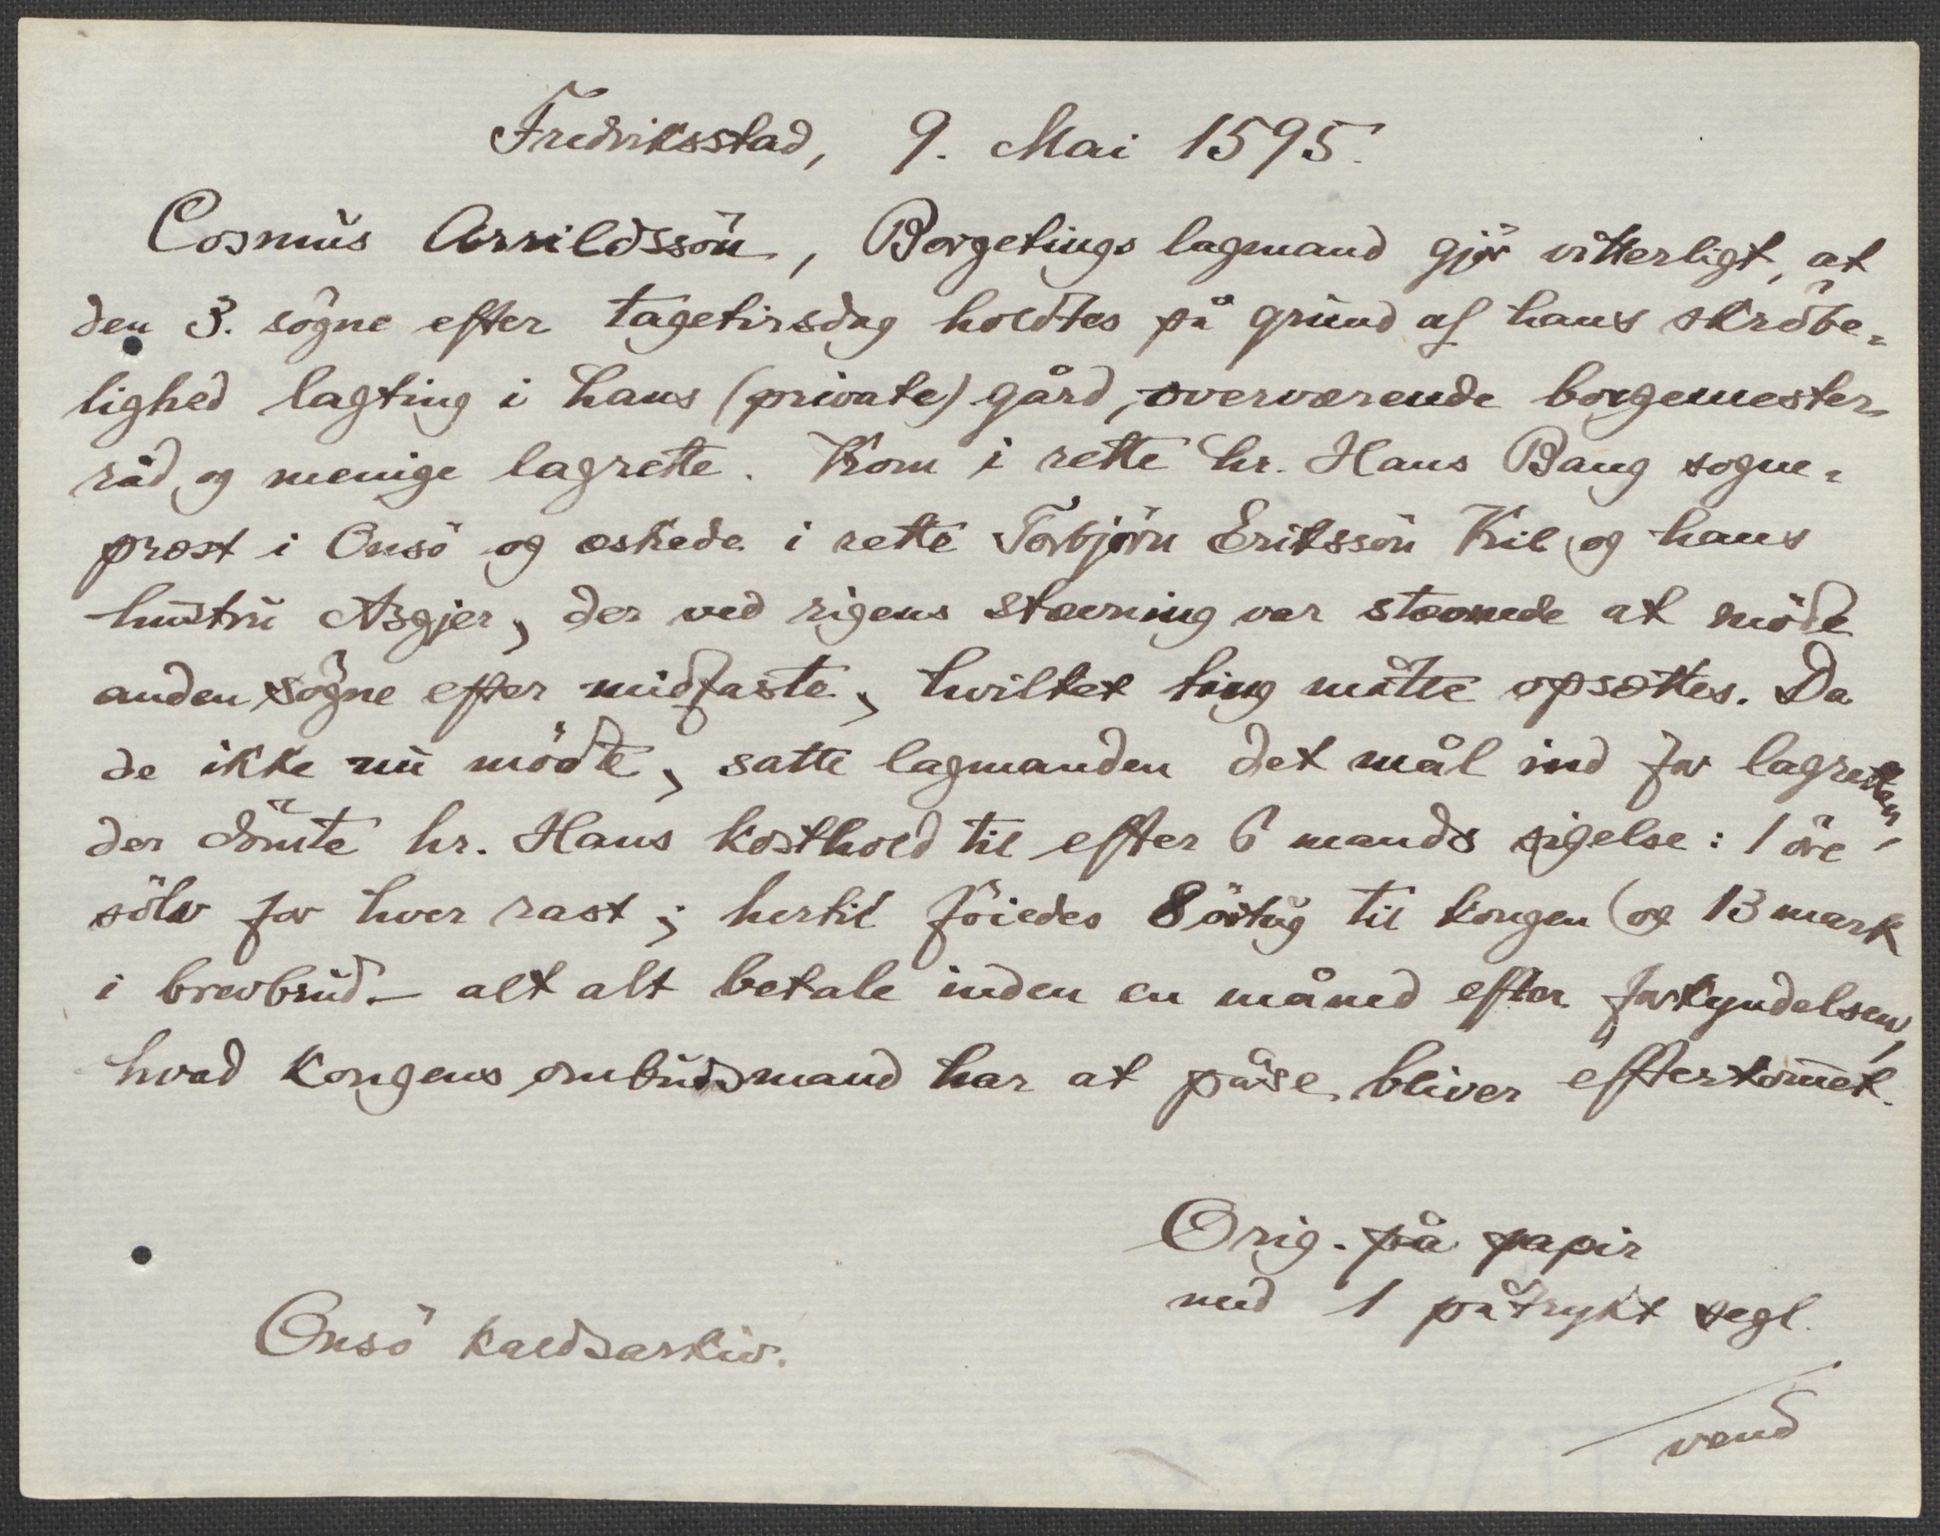 Fredriksstad, 9. Mai 1595.
Cosmus Arrildssön, Borgetings lagmand gjör vitterligt, at
den 3. sögne efter tagetirsdag holdtes på grund af hans skröbe-
lighed lagting i hans (private) gård, overværende borgemester,
råd og menige lagrette. Kom i rette hr. Hans Bang sogne-
prest i Onsö og æskede i rette Torbjörn Erikssön Kil og hans
hustru Asgjer, der ved rigens stævning var stævnede at möde
anden sögne efter midfaste, hvilket ting måtte opsættes. Da
de ikke nu mödte, satte lagmanden det mål ind for lagretten,
der dömte hr. Hans kosthold til efter 6 mands sigelse: 1 öre
sölv for hver rast; hertil föiedes 8 örtug til kongen og 13 mark
i brevbrud. – alt alt betale inden en måned efter forkyndelsen,
hvad kongens ombudsmand har at påse bliver efterkom̅et.
Orig. på papir
med 1 påtrykt segl.
Onsö kaldsarkiv.
vend